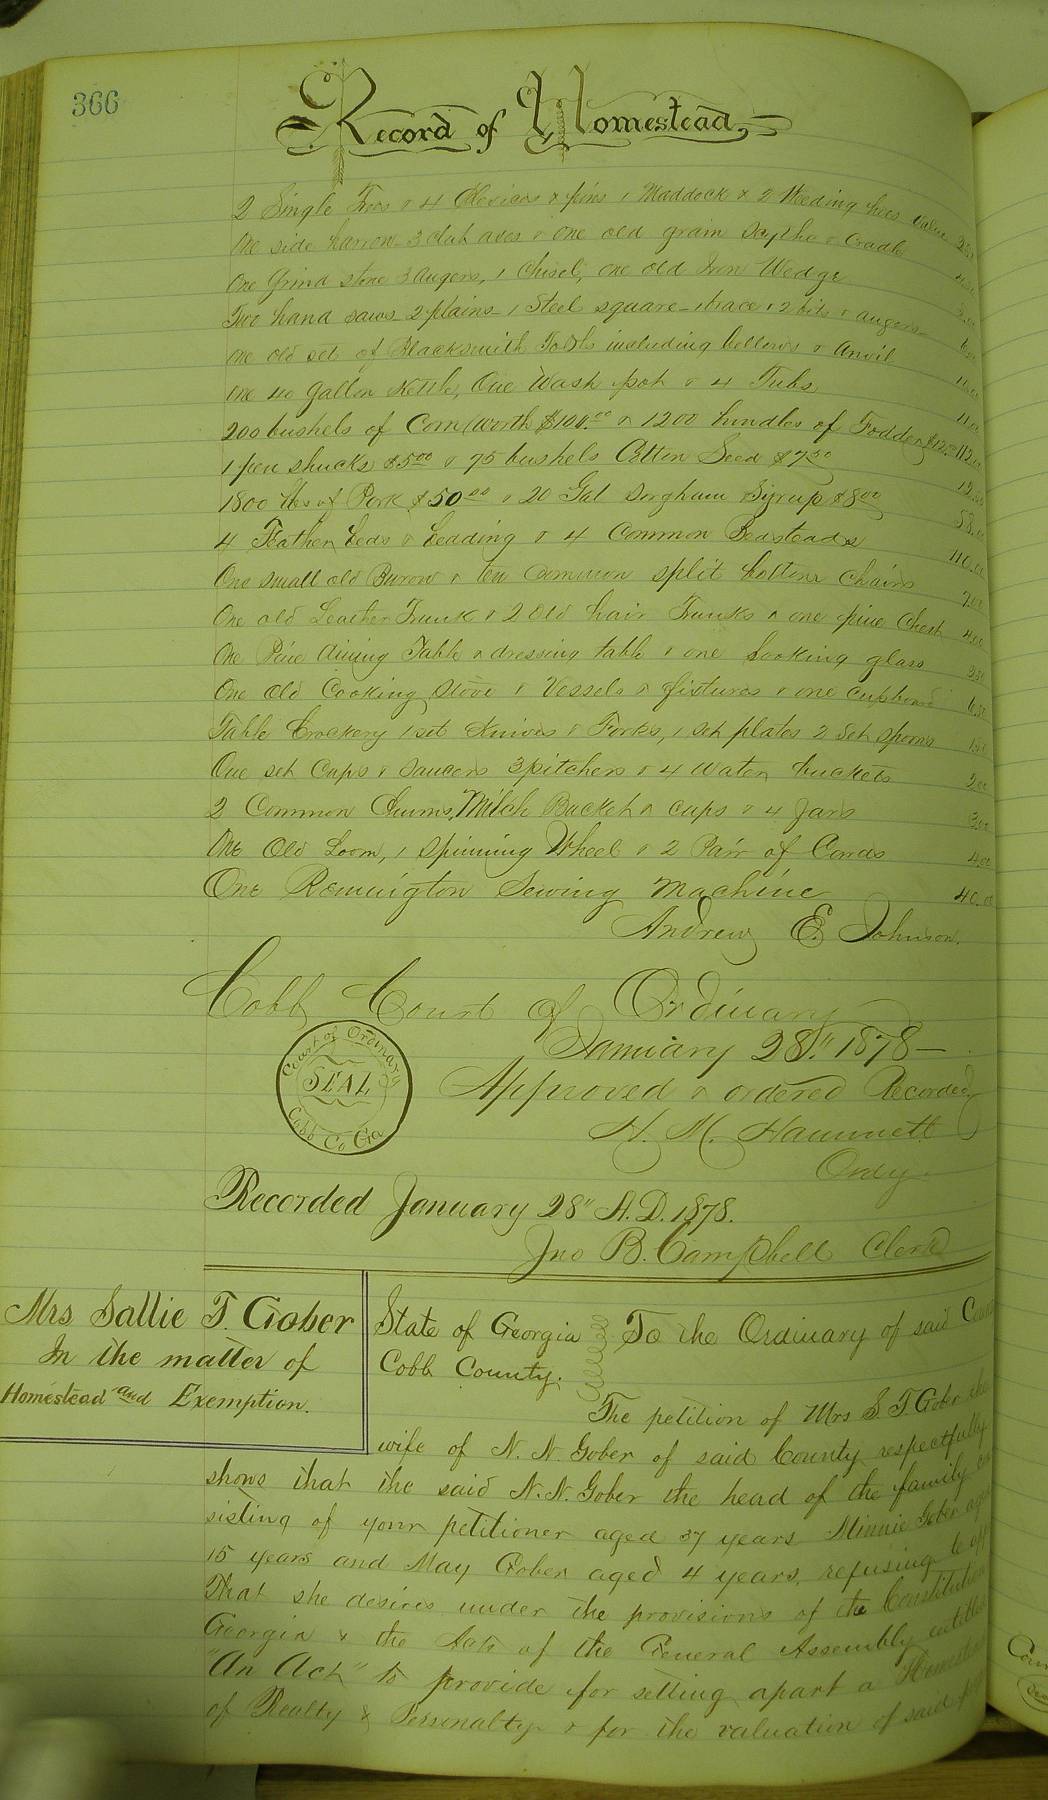 366
Record of Homestead
2 Single Trees & 4 Clevices & pins 1 Maddock & 2 Weeding hoes value
One side harrow 3 club axes & one old grain Scythe & Cradle
One Grind stone 3 Augers, 1 Chisel, one old Iron Wedge
Two hand saws 2 plains 1 Steel square 1 brace & 2 bits & augers
One old set of Blacksmith Tools including bellows & Anvil
One 40 Gallon Kettle, One Wash pot & 4 Tubs 11.00
200 bushels of Corn (worth $100.00 & 1200 bundles of Fodder $12.00 112.00
1 pen shucks $5.00 & 75 bushels Cotton Seed $7.50 12.50
1800 lbs of Pork $50.00 & 20 Gal Sorghum Syrup $8.00 58.00
4 Feather beds & bedding & 4 Common Bedsteads 110.00
One small old Burow & ten common split bottom Chairs 7.00
One old Leather Trunk & 2 Old hair Trunks & one pine Chest 4.00
One Pine dining Table & dressing table & one looking glass 3.50
One Old Cooking Stove & Vessels & fixtures & one cupboard 6.50
Table Crockery 1 set Knives & Forks, 1 set plates 2 Set spoons 1.50
One set Cups & Saucers 3 pitchers & 4 Water buckets 2.00
2 Common Churns, Milch Bucket & cups & 4 Jars 3.00
One Old Loom, 1 Spinning Wheel & 2 Pair of Cards 4.00
One Remington Sewing Machine 40.00
Andrew E. Johnson.
Cobb Court of Ordinary
January 28" 1878—
Court of Ordinary
SEAL
Cobb Co Ga
Approved & ordered Recorded
H. M. Hammett
Ordy.
Recorded January 28" A.D. 1878.
Jno B. Campbell Clerk
Mrs Sallie T. Gober
In the matter of
Homestead and Exemption.
State of Georgia
Cobb County.
To the Ordinary of said
The petition of Mrs S. T. Gober the
wife of N. N. Gober of said County respectfully
shows that the said N. N. Gober the head of the family con
sisting of your petitioner aged 37 years Minnie Gober aged
15 years and May Gober aged 4 years, refusing to
That she desires under the provisions of the Constitution
Georgia & the Acts of the General Assembly entitled
"An Act" to provide for setting apart a Homestead
of Realty & Personalty & for the valuation of said